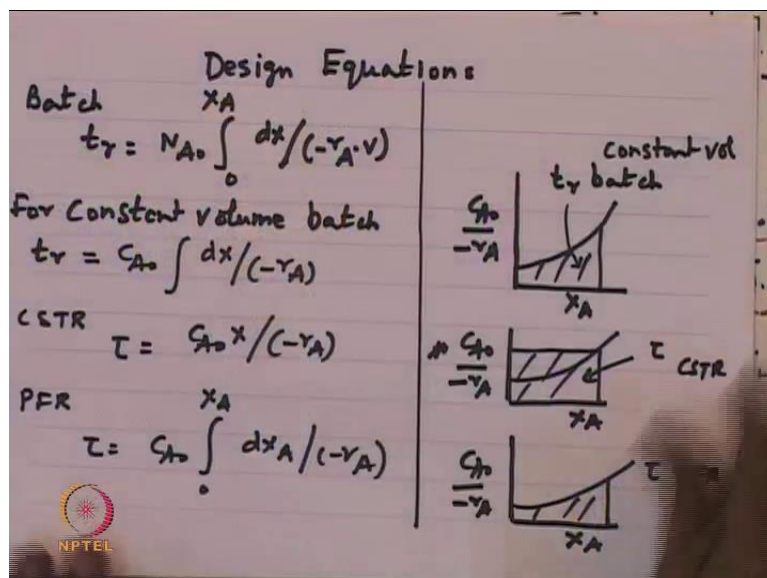 Design Equations
Batch
t_r = N_A0 ∫_0^XA dx/(-r_A·V)
For Constant volume batch
t_r = C_A0 ∫ dx/(-r_A)
CSTR
τ = C_A0 x/(-r_A)
PFR
τ = C_A0 ∫_0^XA dx_A/(-r_A)
constant vol
t_r batch
C_A0/-r_A
X_A
C_A0/-r_A
τ CSTR
X_A
C_A0/-r_A
τ
X_A
NPTEL